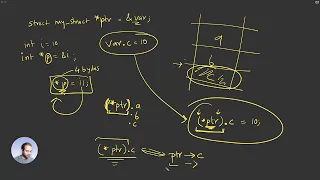 struct my_struct *ptr = &var;
int i=10
int *p = &i;
4 bytes
*p = 11;
var.c = 10
a
b
(*ptr).a
.b
.c
(*ptr).c = 10;
(*ptr).c
ptr → c